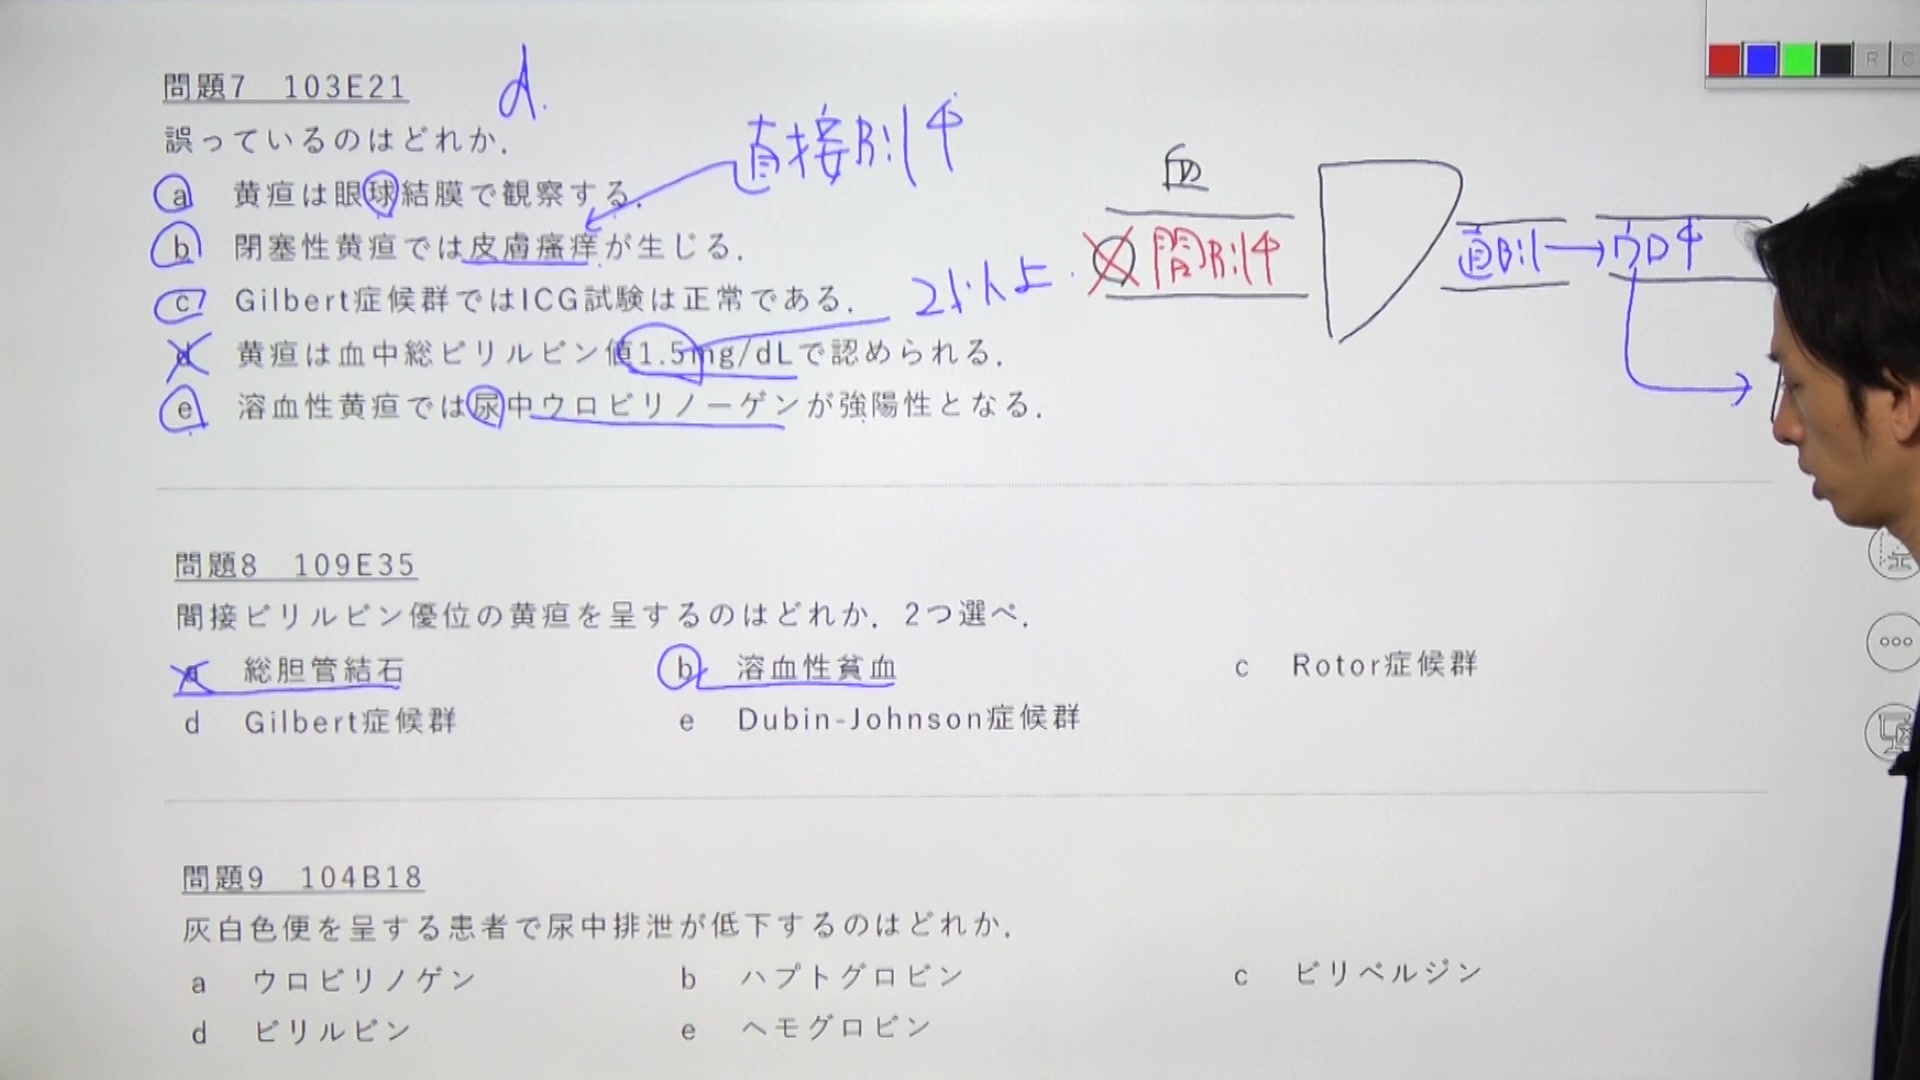 問題7 103E21
d.
誤っているのはどれか.
a 黄疸は眼球結膜で観察する.
直接Bil↑
b 閉塞性黄疸では皮膚瘙痒が生じる.
c Gilbert症候群ではICG試験は正常である.
2以上
d 黄疸は血中総ビリルビン値1.5mg/dLで認められる.
e 溶血性黄疸では尿中ウロビリノーゲンが強陽性となる.
血
間Bil↑
直Bil→ウロ↑
問題8 109E35
間接ビリルビン優位の黄疸を呈するのはどれか. 2つ選べ.
a 総胆管結石 b 溶血性貧血 c Rotor症候群
d Gilbert症候群 e Dubin-Johnson症候群
問題9 104B18
灰白色便を呈する患者で尿中排泄が低下するのはどれか.
a ウロビリノゲン b ハプトグロビン c ビリベルジン
d ビリルビン e ヘモグロビン
R C